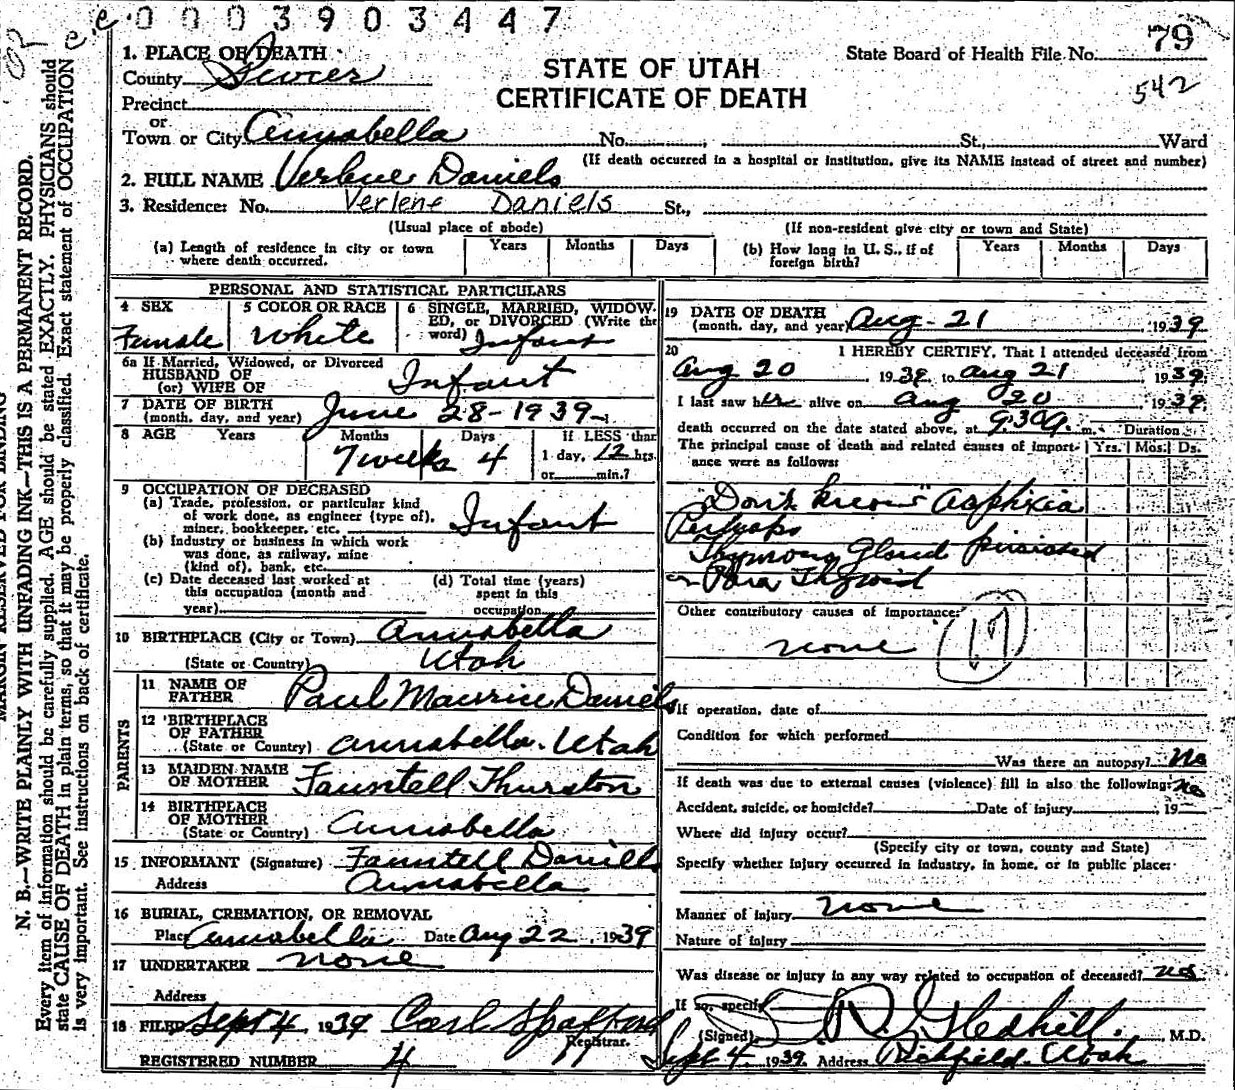 0003903447
79
1. PLACE OF DEATH
State Board of Health File No.
County Sevier
STATE OF UTAH
542
Precinct
CERTIFICATE OF DEATH
or
Town or City Annabella No. St., Ward
(If death occurred in a hospital or institution, give its NAME instead of street and number)
2. FULL NAME Verlene Daniels
3. Residence: No. Verlene Daniels St.,
(Usual place of abode) (If non-resident give city or town and State)
(a) Length of residence in city or town where death occurred. Years Months Days
(b) How long in U. S., if of foreign birth? Years Months Days
PERSONAL AND STATISTICAL PARTICULARS
4 SEX Female
5 COLOR OR RACE White
6 SINGLE, MARRIED, WIDOWED, or DIVORCED (Write the word) Infant
6a If Married, Widowed, or Divorced
HUSBAND OF
(or) WIFE OF Infant
7 DATE OF BIRTH
(month, day, and year) June 28-1939
8 AGE Years Months Days If LESS than
7 weeks 4 1 day, 12 hrs.
or min.?
9 OCCUPATION OF DECEASED
(a) Trade, profession, or particular kind
of work done, as engineer (type of),
miner, bookkeeper, etc. Infant
(b) Industry or business in which work
was done, as railway, mine
(kind of), bank, etc.
(c) Date deceased last worked at
this occupation (month and
year)
(d) Total time (years)
spent in this
occupation
10 BIRTHPLACE (City or Town) Annabella
(State or Country) Utah
PARENTS
11 NAME OF
FATHER Paul Maurice Daniels
12 BIRTHPLACE
OF FATHER
(State or Country) Annabella. Utah
13 MAIDEN NAME
OF MOTHER Fauntell Thurston
14 BIRTHPLACE
OF MOTHER
(State or Country) Annabella
15 INFORMANT (Signature) Fauntell Daniels
Address Annabella
16 BURIAL, CREMATION, OR REMOVAL
Place Annabella Date Aug 22, 1939
17 UNDERTAKER none
Address
18 FILED Sept 4 1939 Carl Spafford
Registrar.
REGISTERED NUMBER 4
19 DATE OF DEATH
(month, day, and year) Aug-21, 1939
20 I HEREBY CERTIFY, That I attended deceased from
Aug 20 1939 to Aug 21 1939
I last saw her alive on Aug 20 1939
death occurred on the date stated above, at 9:30 a. m. Duration
The principal cause of death and related causes of importance were as follows: Yrs. Mos. Ds.
"Don't know" Asphixia
Perhaps
Thymous Gland persisted
or Para Thyroid
Other contributory causes of importance:
none
17
If operation, date of
Condition for which performed
Was there an autopsy? No
If death was due to external causes (violence) fill in also the following: No
Accident, suicide, or homicide? Date of injury 19
Where did injury occur?
(Specify city or town, county and State)
Specify whether injury occurred in industry, in home, or in public place:
Manner of injury none
Nature of injury
Was disease or injury in any way related to occupation of deceased? no
If so, specify
(Signed) R. Gledhill. M.D.
Sept 4 1939 Address Richfield. Utah
MARGIN RESERVED FOR BINDING
N. B.—WRITE PLAINLY WITH UNFADING INK—THIS IS A PERMANENT RECORD.
Every item of information should be carefully supplied. AGE should be stated EXACTLY. PHYSICIANS should
state CAUSE OF DEATH in plain terms, so that it may be properly classified. Exact statement of OCCUPATION
is very important. See instructions on back of certificate.